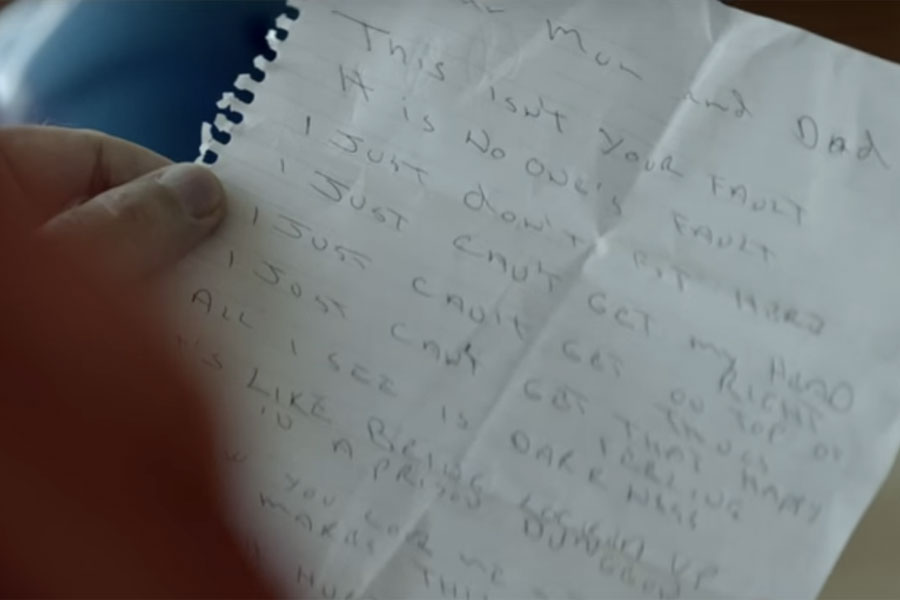 Mum and Dad
This isn't your FAULT
It is No one's FAULT
I JUST don't FIT HERE
I JUST CAN'T GET my HEAD
RIGHT
I JUST CAN'T GET on TOP of
I JUST CAN'T GET THAT HAPPY
FEELING
ALL I SEE IS DARKNESS
LIKE BEING LOCKED UP
IN A PRISON DUNGEON
YOU LOVE ME
MAKES THIS